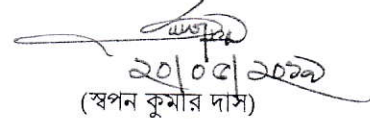 ২০|০৫|২০১৯
(স্বপন কুমার দাস)